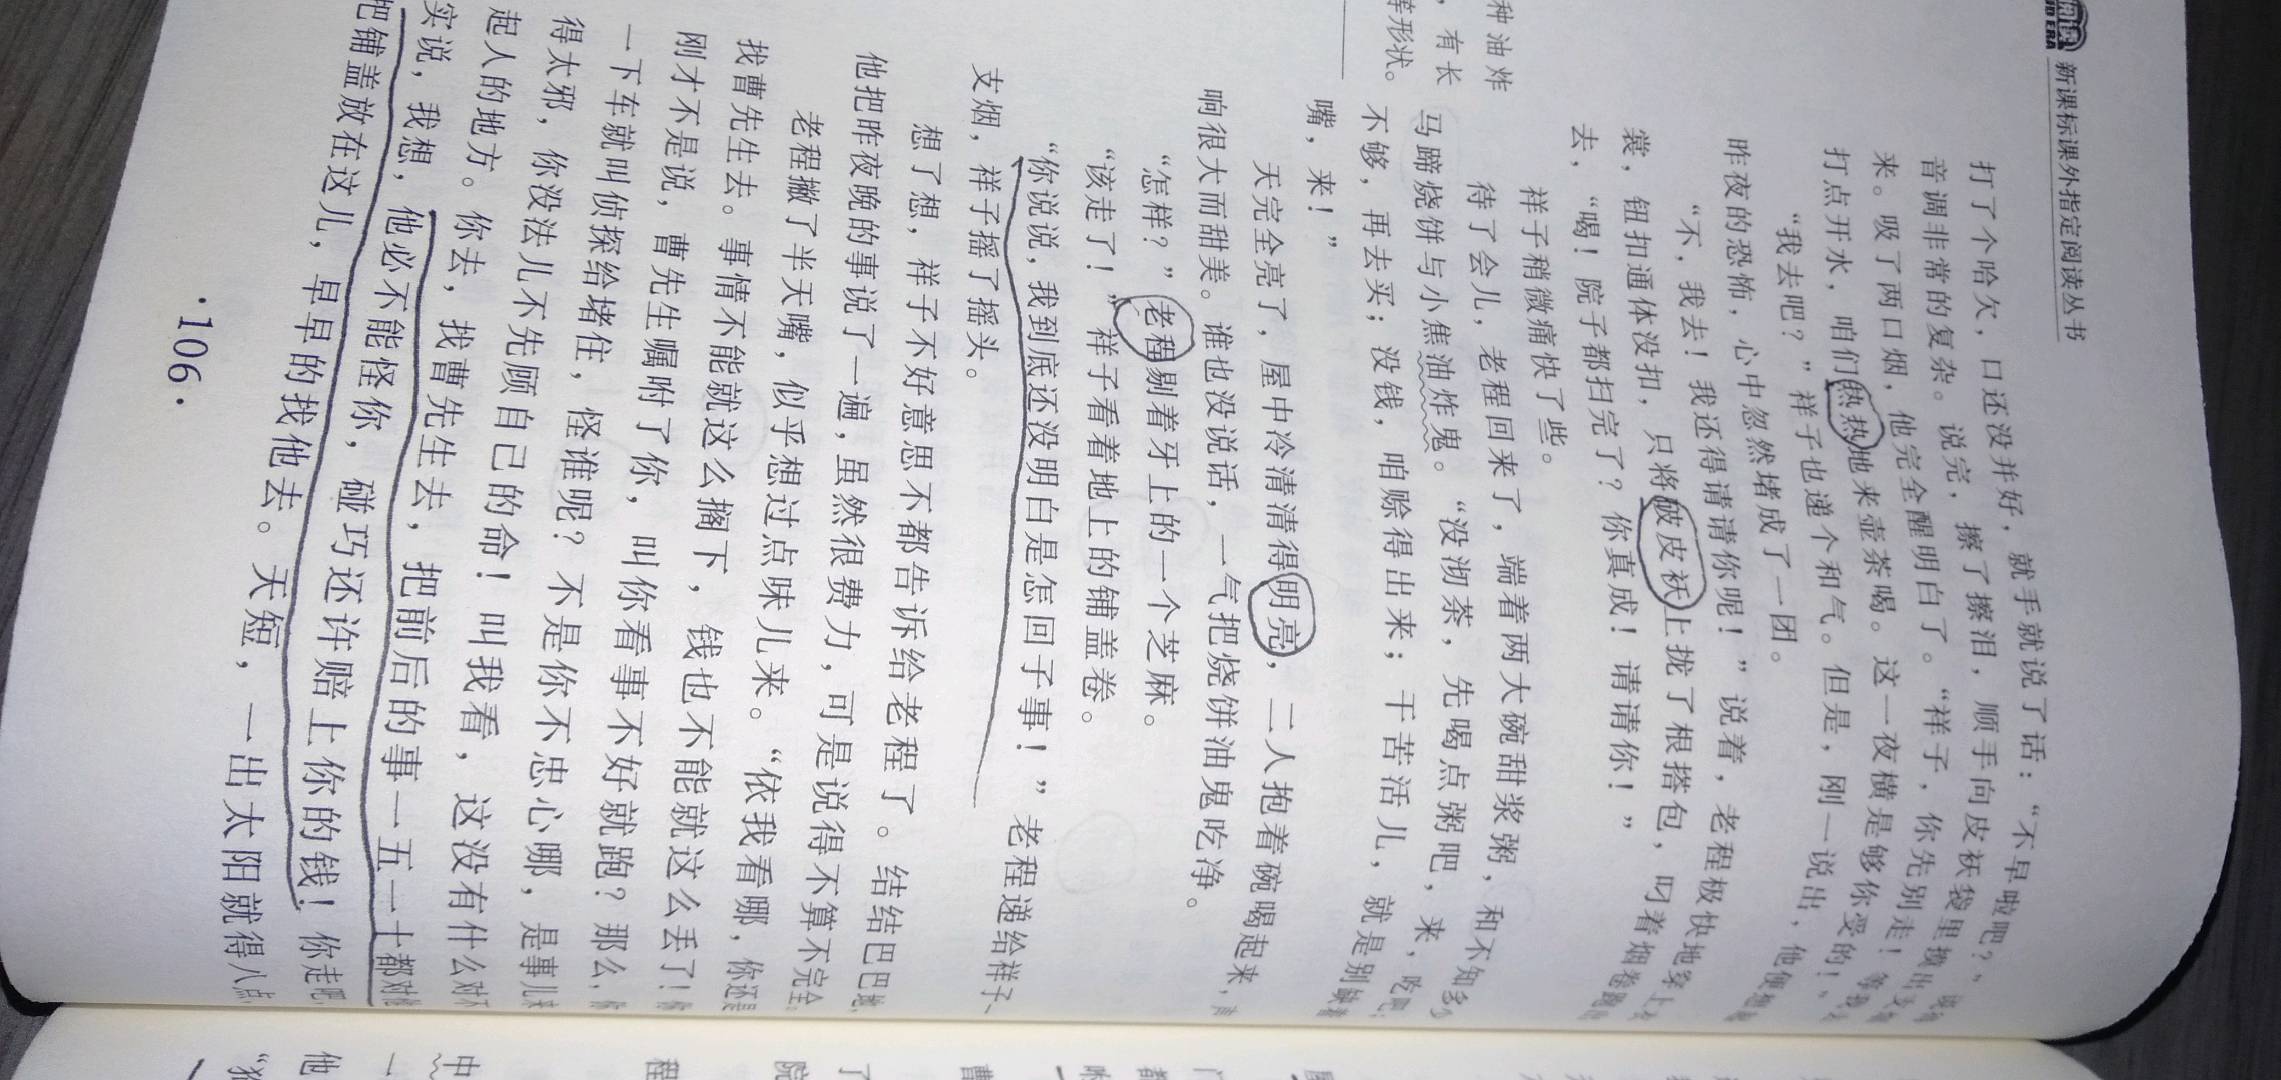 新课标课外指定阅读丛书
打了个哈欠，口还没并好，就手就说了话：“不早啦吧？”
音调非常的复杂。说完，擦了擦泪，顺手向皮袄袋里掏出
来。吸了两口烟，他完全醒明白了。“祥子，你先别走！
打点开水，咱们热热地来壶茶喝。这一夜横是够你受的！”
“我去吧？”祥子也递个和气。但是，刚一说出，他便
昨夜的恐怖，心中忽然堵成了一团。
“不，我去！我还得请请你呢！”说着，老程极快地穿上
裳，钮扣通体没扣，只将破皮袄上拢了根搭包，叼着烟卷跑出
去，“喝！院子都扫完了？你真成！请请你！”
祥子稍微痛快了些。
待了会儿，老程回来了，端着两大碗甜浆粥，和不知多少
马蹄烧饼与小焦油炸鬼。“没沏茶，先喝点粥吧，来，吃吧；
不够，再去买；没钱，咱赊得出来；干苦活儿，就是别缺着
嘴，来！”
天完全亮了，屋中冷清清得明亮，二人抱着碗喝起来，声
响很大而甜美。谁也没说话，一气把烧饼油鬼吃净。
“怎样？”老程剔着牙上的一个芝麻。
“该走了！”祥子看着地上的铺盖卷。
“你说说，我到底还没明白是怎回子事！”老程递给祥子一
支烟，祥子摇了摇头。
想了想，祥子不好意思不都告诉给老程了。结结巴巴地，
他把昨夜晚的事说了一遍，虽然很费力，可是说得不算不完全。
老程撇了半天嘴，似乎想过点味儿来。“依我看哪，你还是
找曹先生去。事情不能就这么搁下，钱也不能就这么丢了！你
刚才不是说，曹先生嘱咐了你，叫你看事不好就跑？那么，你
一下车就叫侦探给堵住，怪谁呢？不是你不忠心哪，是事儿来
得太邪，你没法儿不先顾自己的命！叫我看，这没有什么对不
起人的地方。你去，找曹先生去，把前后的事一五一十都对他
实说，我想，他必不能怪你，碰巧还许赔上你的钱！你走吧，
把铺盖放在这儿，早早的找他去。天短，一出太阳就得八点，
·106·
种油炸
，有长
等形状。